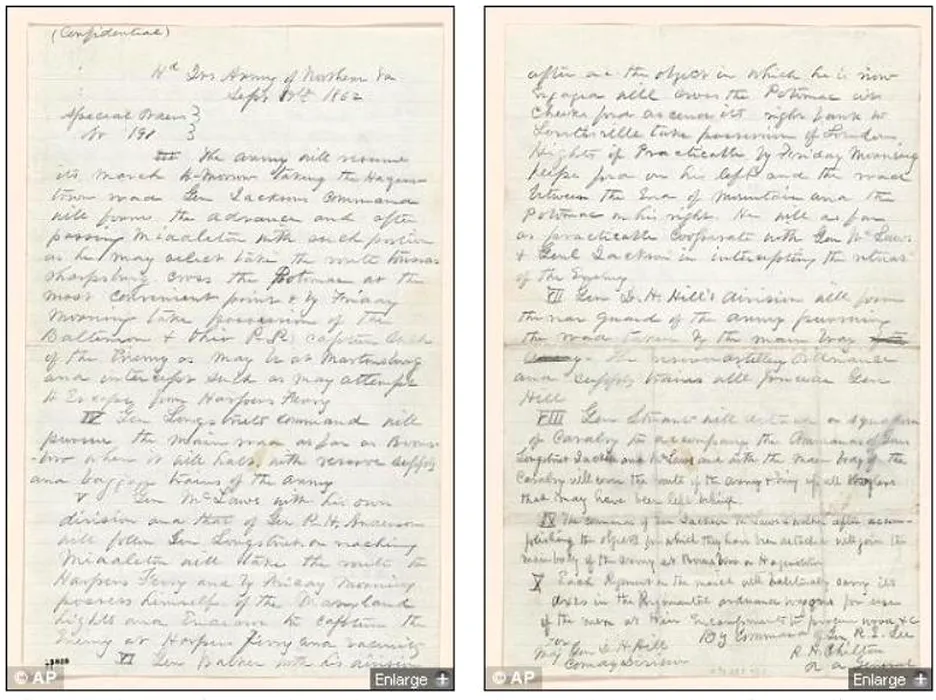 (Confidential)
Hd Qrs Army of Northern Va
Sept 9th 1862
Special Orders }
No 191 }
III The army will resume
its march to-morrow taking the Hagers
town road Gen Jacksons Command
will form the advance and after
passing Middleton with such portion
as he may select take the route towards
Sharpsburg cross the Potomac at the
most convenient point & by Friday
Morning take possession of the
Baltimore & Ohio R.R. capture such
of the Enemy as may be at Martinsburg
and intercept such as may attempt
to Escape from Harpers Ferry
IV Gen Longstreets command will
pursue the main road as far as Boons-
-boro where it will halt, with reserve supply
and baggage trains of the army
V Gen McLaws with his own
division and that of Gen R. H. Anderson
will follow Gen Longstreet on reaching
Middleton will take the route to
Harpers Ferry and by Friday Morning
possess himself of the Maryland
hights and Endeavor to capture the
Enemy at Harpers Ferry and vicinity
VI Gen Walker with his division
© AP
Enlarge +
after the object in which he is now
Engaged will cross the Potomac at
Cheeks ford ascend its right bank to
Lovettsville take possession of Loudon
Hights if Practicable by Friday Morning
Keeps ford on his left and the road
between the End of Mountain and the
Potomac on his right. He will as far
as practicable Cooperate with Gen McLaws
& Genl Jackson in intercepting the retreat
of the Enemy
VII Gen D. H. Hill's division will form
the rear guard of the army pursuing
the road taken by the main body
The reserve artillery Ordnance
and supply trains will precede Gen
Hill
VIII Gen Stuart will detach a squadron
of Cavalry to accompany the Commands of Gen
Longstreet Jackson and McLaws and with the main body of the
Cavalry will cover the route of the army & bring up all stragglers
that may have been left behind
IX The commands of Gen Jackson McLaws & Walker after accom-
-plishing the objects for which they have been detached will join the
main body of the army at Boonsboro or Hagerstown
X Each Regiment on the march will habitually carry its
axes in the Regimental ordnance wagons for use
of the men at their Encampments to procure wood &c
By Command of Gen R. E. Lee
For
Maj Gen D. H. Hill
R. H. Chilton
Comdg Division
A A General
© AP
Enlarge +